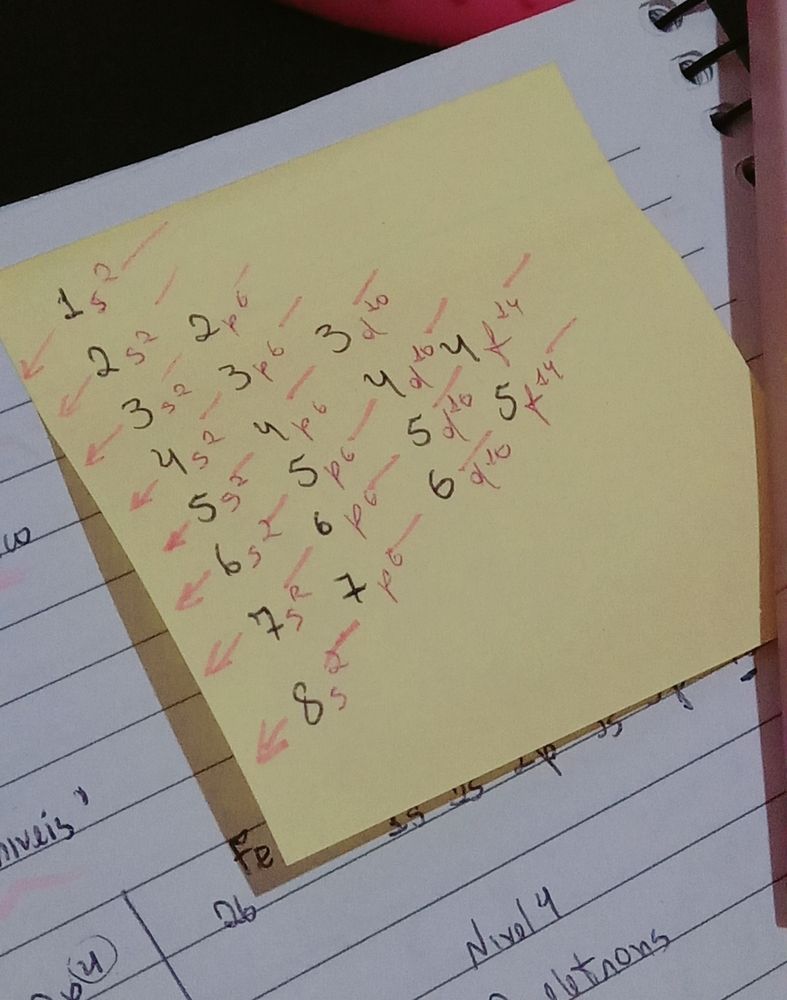 1s²
2s² 2p⁶
3s² 3p⁶ 3d¹⁰
4s² 4p⁶ 4d¹⁰ 4f¹⁴
5s² 5p⁶ 5d¹⁰ 5f¹⁴
6s² 6p⁶ 6d¹⁰
7s² 7p⁶
8s²
níveis"
Fe
26
Nível 4